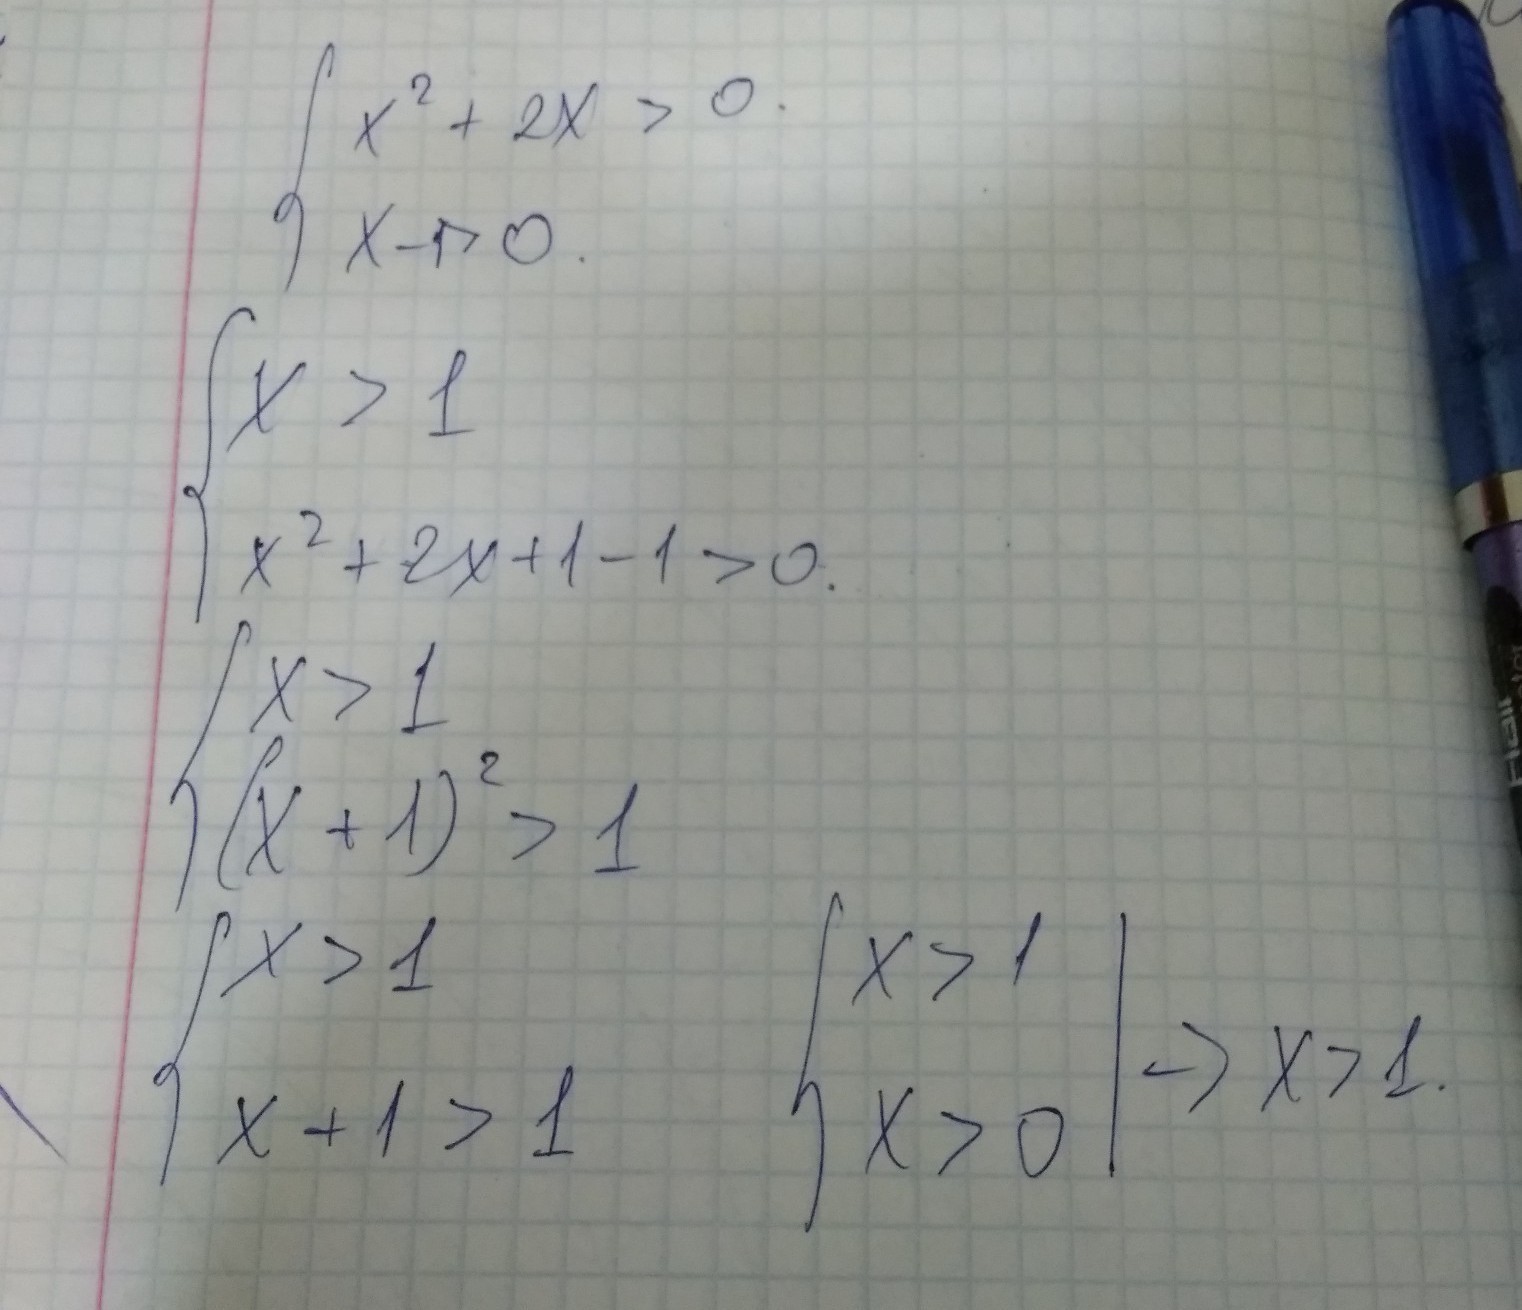 x² + 2x > 0.
x - 1 > 0.
x > 1
x² + 2x + 1 - 1 > 0.
x > 1
(x + 1)² > 1
x > 1
x + 1 > 1
x > 1
x > 0 | → x > 1.